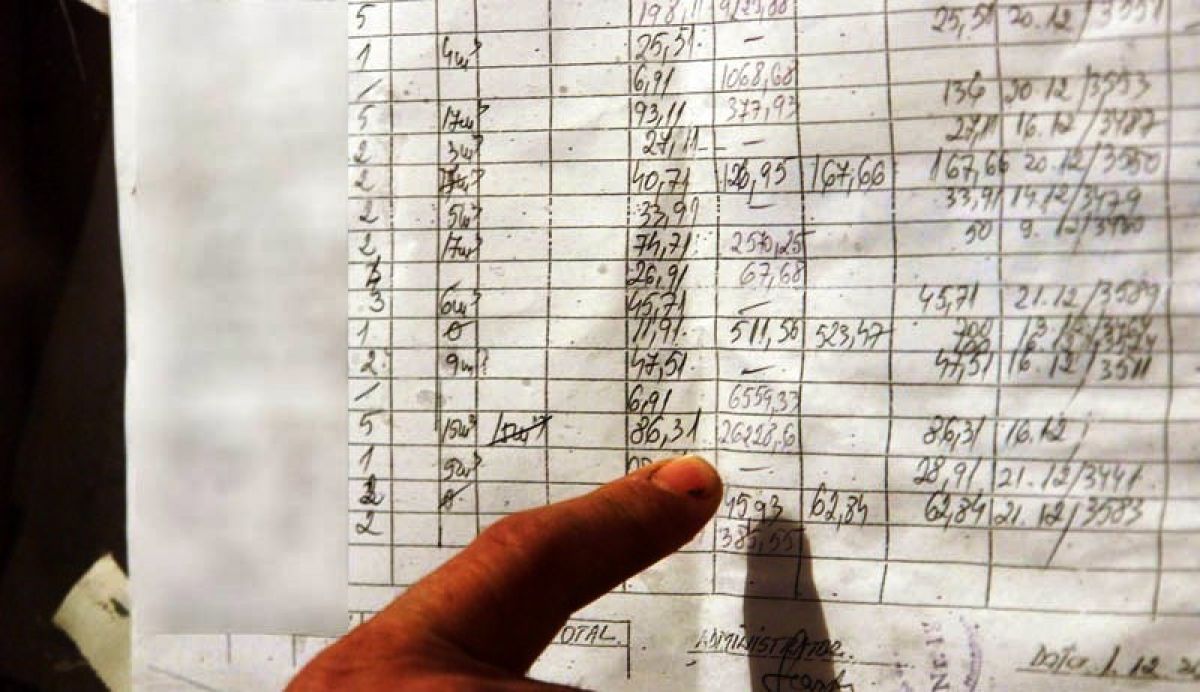 5 198,11 9129,88 25,51 20.12/3551
1 4m³ 25,51 —
/ 6,91 1068,68 136 20.12/3553
5 17m³ 93,11 377,93
2 3m³ 27,11 — 27,11 16.12/3487
2 7m³ 40,71 126,95 167,66 167,66 20.12/3550
2 5m³ 33,91 — 33,91 14.12/3479
2 17m³ 74,71 2570,25 50 9.12/3480
1 26,91 67,68
3 6m³ 45,71 — 45,71 21.12/3589
1 0 11,91 511,56 523,47 700 13.12
2 9m³ 47,51 — 47,51 16.12/3511
/ 6,91 6559,33
5 15m³ 86,31 26228,6 86,31 16.12
1 5m³ — 28,91 21.12/3441
2 0 1593 62,84 62,84 21.12/3583
2 385,55
TOTAL ADMINISTRATOR Data 1.12